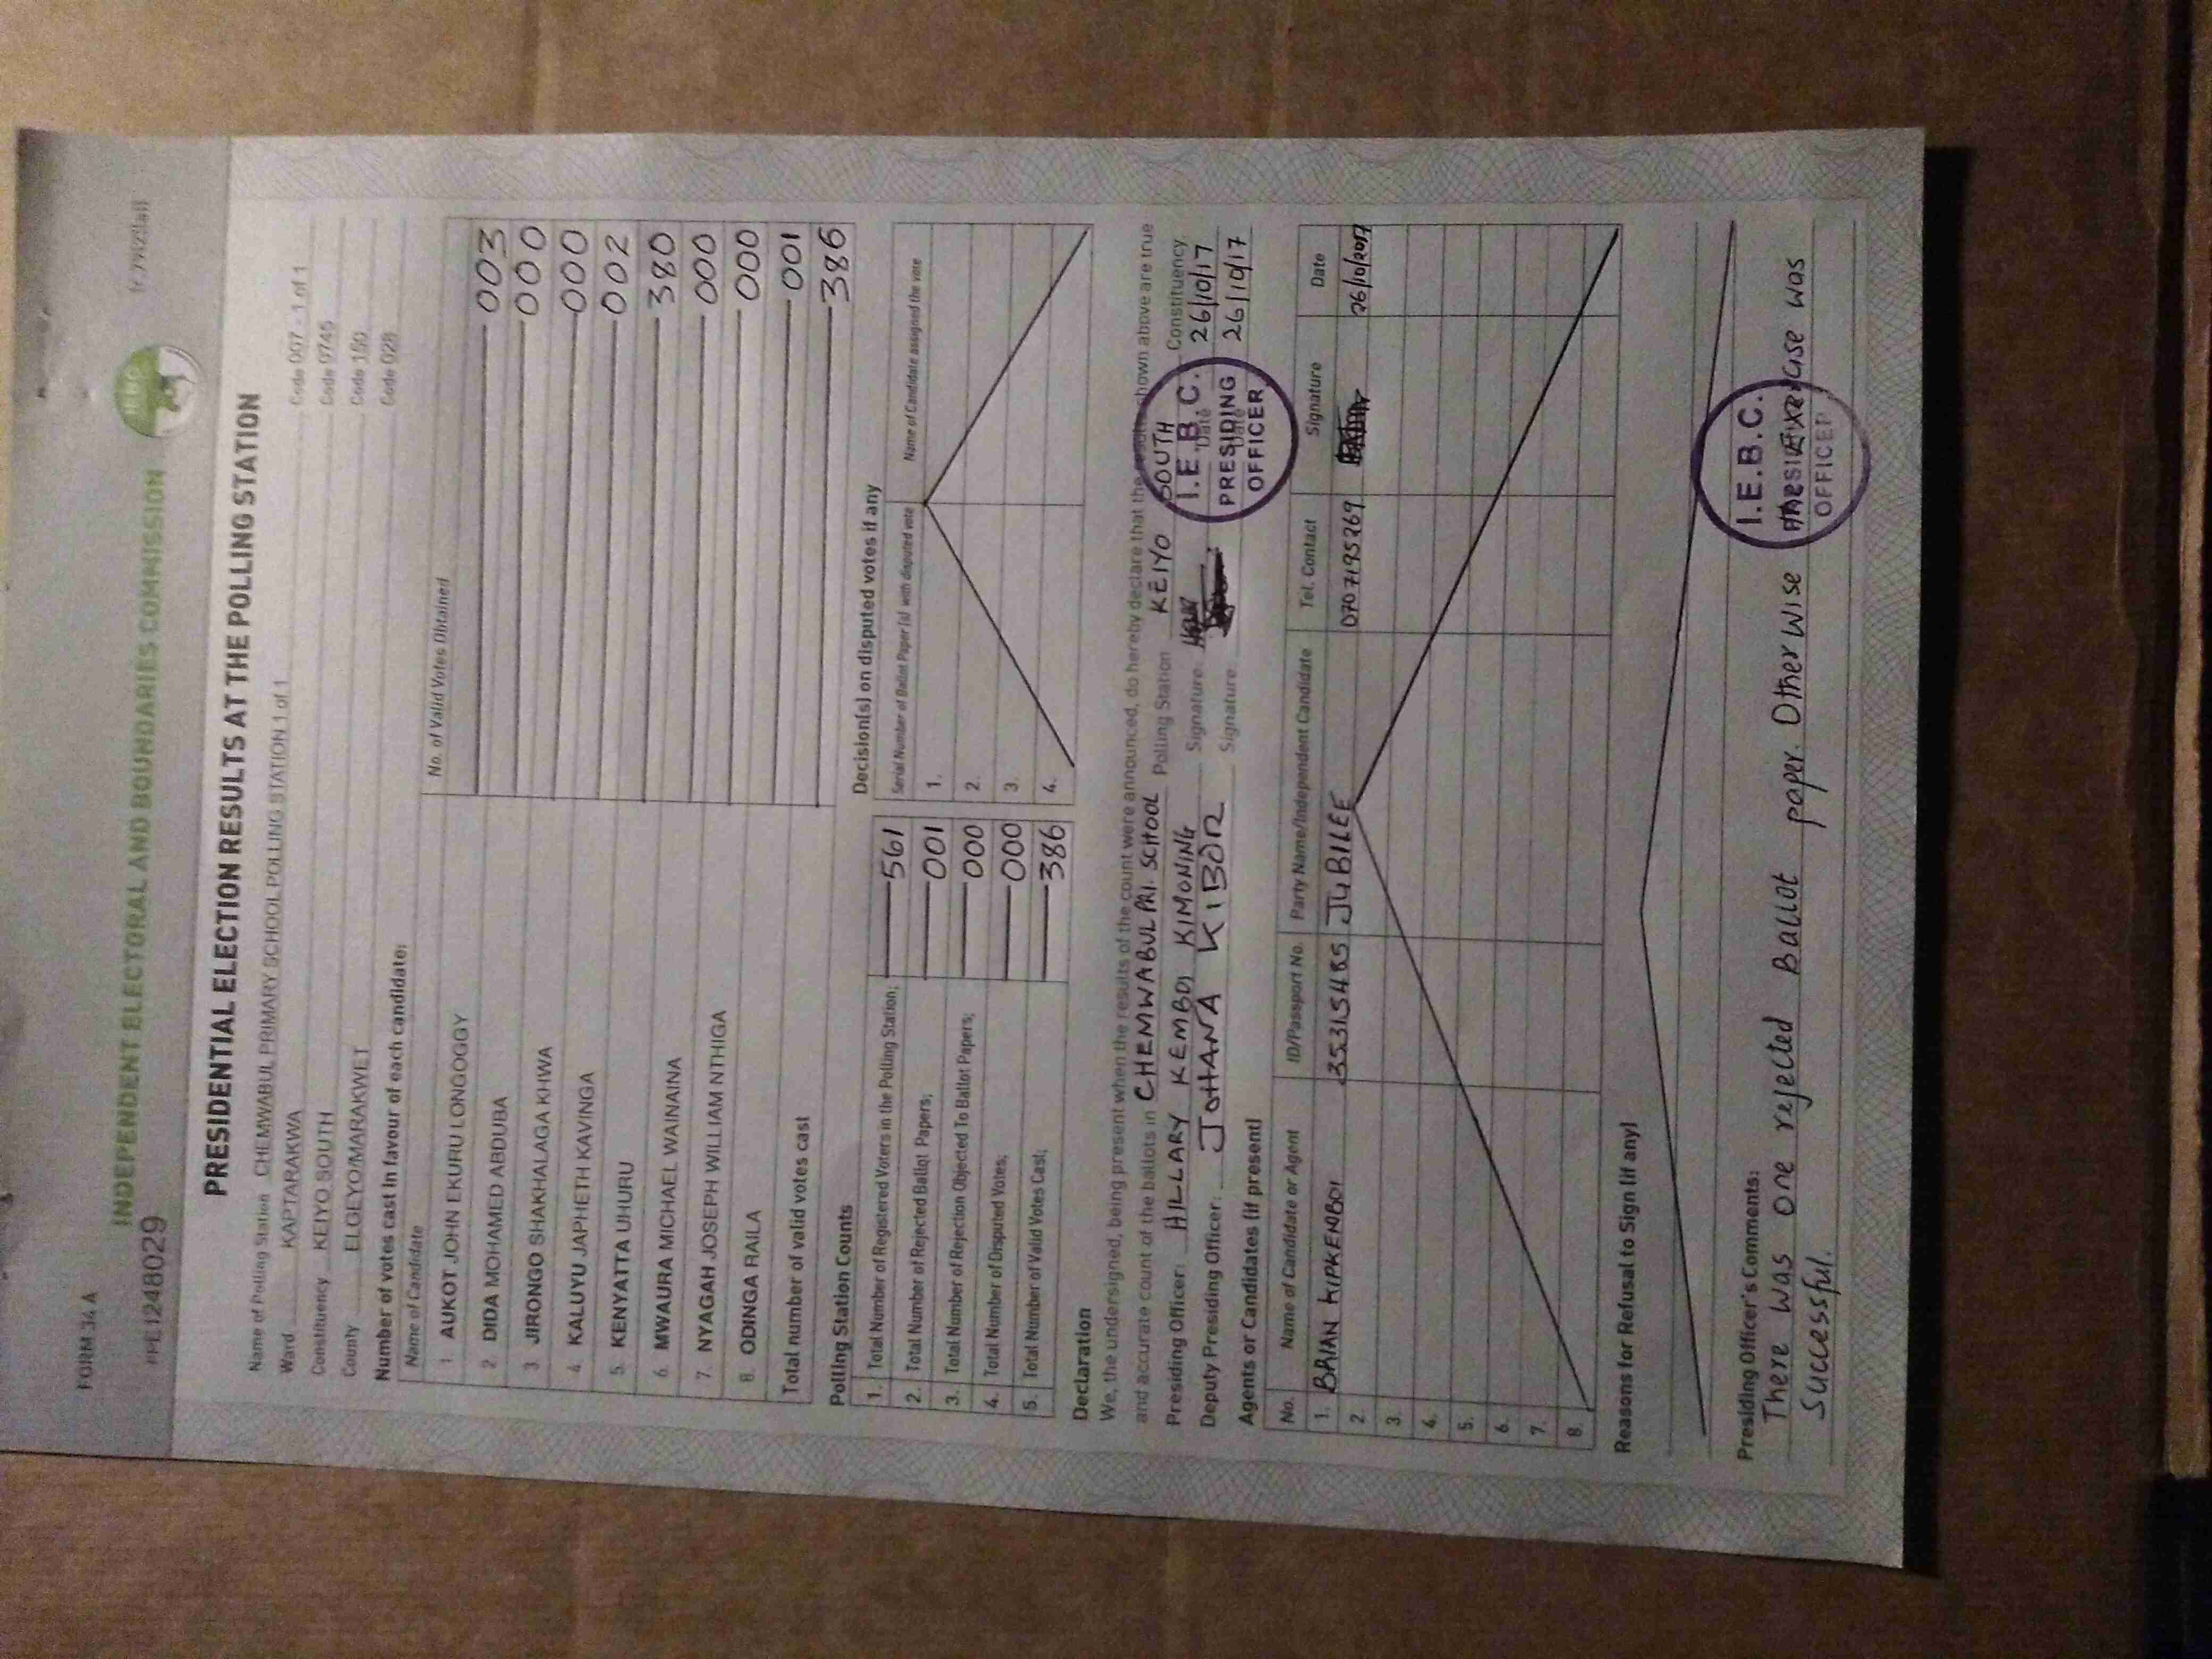 FORM 34 A
INDEPENDENT ELECTORAL AND BOUNDARIES COMMISSION
IEBC
PRE1248029
PRESIDENTIAL ELECTION RESULTS AT THE POLLING STATION
Name of Polling Station CHEMWABUL PRIMARY SCHOOL POLLING STATION 1 of 1 Code 007 - 1 of 1
Ward KAPTARAKWA Code 0745
Constituency KEIYO SOUTH Code 150
County ELGEYO/MARAKWET Code 028
Number of votes cast in favour of each candidate:
Name of Candidate No. of Valid Votes Obtained
1. AUKOT JOHN EKURU LONGOGGY 003
2. DIDA MOHAMED ABDUBA 000
3. JIRONGO SHAKHALAGA KHWA 000
4. KALUYU JAPHETH KAVINGA 002
5. KENYATTA UHURU 380
6. MWAURA MICHAEL WAINAINA 000
7. NYAGAH JOSEPH WILLIAM NTHIGA 000
8. ODINGA RAILA 001
Total number of valid votes cast 386
Polling Station Counts
1. Total Number of Registered Voters in the Polling Station; 561
2. Total Number of Rejected Ballot Papers; 001
3. Total Number of Rejection Objected To Ballot Papers; 000
4. Total Number of Disputed Votes; 000
5. Total Number of Valid Votes Cast; 386
Decision(s) on disputed votes if any
Serial Number of Ballot Paper (s) with disputed vote Name of Candidate assigned the vote
1.
2.
3.
4.
Declaration
We, the undersigned, being present when the results of the count were announced, do hereby declare that the results shown above are true
and accurate count of the ballots in CHEMWABUL PRI. SCHOOL Polling Station KEIYO SOUTH Constituency.
Presiding Officer: HILLARY KEMBOI KIMONING Signature Date 26/10/17
Deputy Presiding Officer: JOHANA KIBOR Signature Date 26/10/17
I.E.B.C.
PRESIDING
OFFICER
Agents or Candidates (if present)
No. Name of Candidate or Agent ID/Passport No. Party Name/Independent Candidate Tel. Contact Signature Date
1. BRIAN KIPKEMBOI 35315485 JUBILEE 0707195269 26/10/2017
2.
3.
4.
5.
6.
7.
8.
Reasons for Refusal to Sign (if any)
Presiding Officer's Comments:
There was one rejected Ballot paper. Otherwise the exercise was
Successful.
I.E.B.C.
PRESIDING
OFFICER